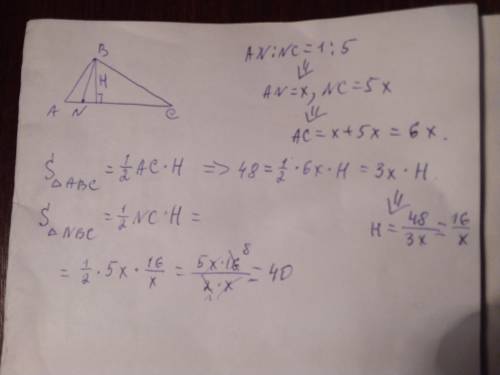 B
H
A N C
AN:NC=1:5
⇓
AN=x, NC=5x
⇓
AC=x+5x=6x.
S△ABC = 1/2 AC·H => 48 = 1/2·6x·H = 3x·H.
⇓
S△NBC = 1/2 NC·H =
H = 48/3x = 16/x
= 1/2·5x·16/x = 5x·16/2·x = 40
8
1